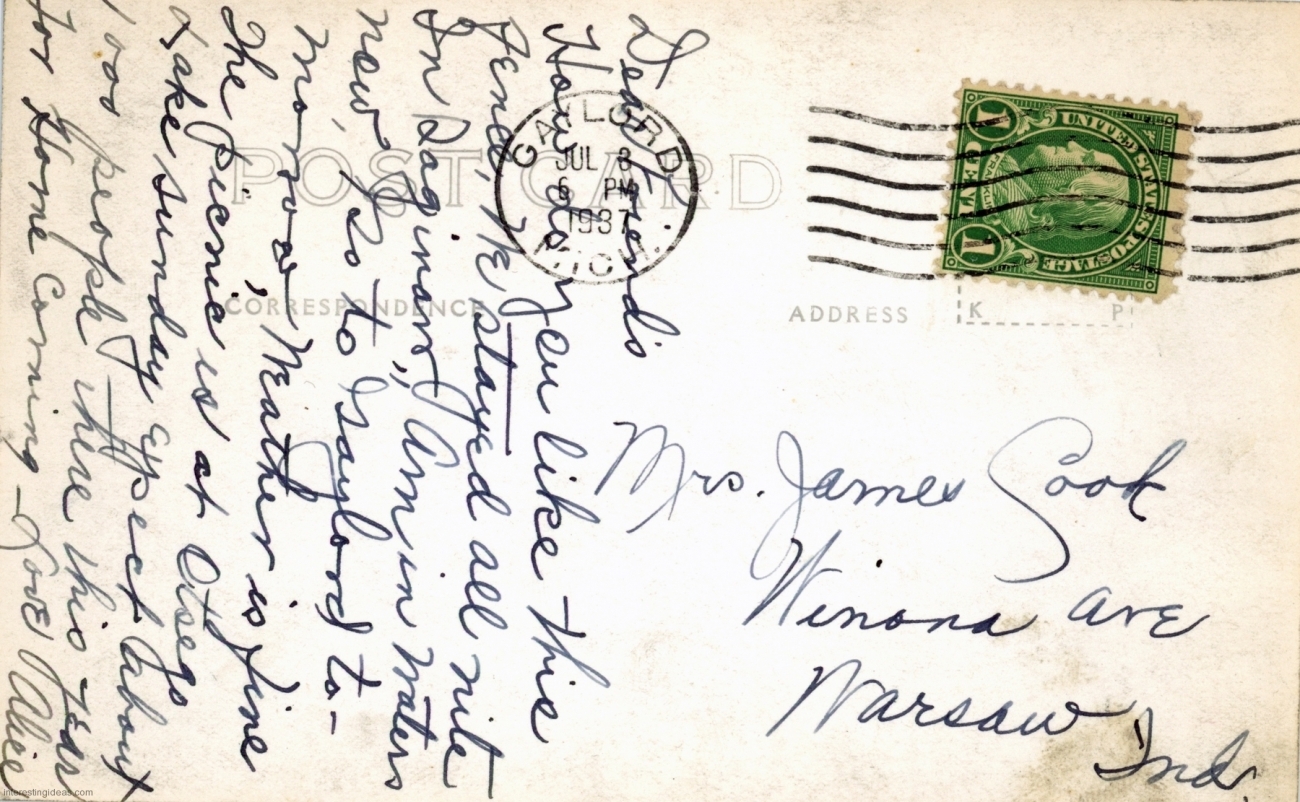 POST CARD
CORRESPONDENCE
ADDRESS
K P
GAYLORD
JUL
6 PM
1937
MICH.
UNITED STATES POSTAGE
FRANKLIN
1 CENT 1
Dear Friend's
How do you like this
We stayed all nite
In Saginaw, am in Waters
now, go to Gaylord to-
morrow, Weather is fine
The picnic is at Otsego
Lake sunday expect about
1000 people there this year
for Home Coming - Love Alice
Mrs. James Cook
Winona ave
Warsaw
Ind.
interestingideas.com